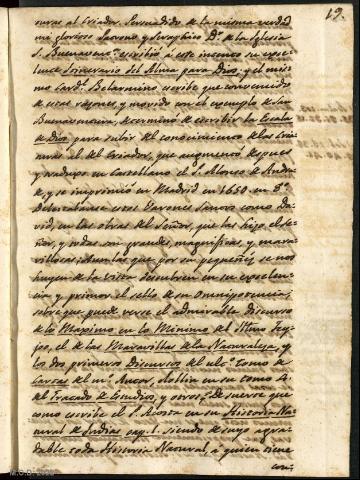 19.
turas al Criador. Persuadido de la misma verdad
mi glorioso Patrono y Seraphico Dr. de la Iglesia
S. Buenaventura escribió á este intento su exce-
lente Itinerario del Alma para Dios, y el mis-
mo Card. Belarmino escribe que convencido
de estas razones, y movido con el exemplo de San
Buenaventura, determinó de escribir la Escala
de Dios para subir del conocimiento de las Cria-
turas al del Criador, que augmentó despues
y traduxo en Castellano el P. Alonso de Andra-
de, y se imprimió en Madrid en 1650 en 8º
Deleitabanse estos Varones Santos como Da-
vid, en las obras del Señor, que las hizo el Se-
ñor, y todas son grandes, magnificas, y mara-
villosas; Aun las que por su pequeñez se nos
huyen de la vista descubren en su excelen-
cia y primor el sello de su Omnipotencia,
sobre que puede verse el admirable discurso
de lo Maximo en lo Minimo del Ilmo Fey-
joo, el de las Maravillas de la Naturaleza, y
los dos primeros Discursos del tomo de
Cartas del mº Autor, en su tomo 4.
del Tratado de Estudios, y otros. De suerte que
como escribe el P. Acosta en su Historia Na-
tural de Indias cap. 1. siendo de suyo agra-
dable toda Historia Natural, á quien tiene
con-